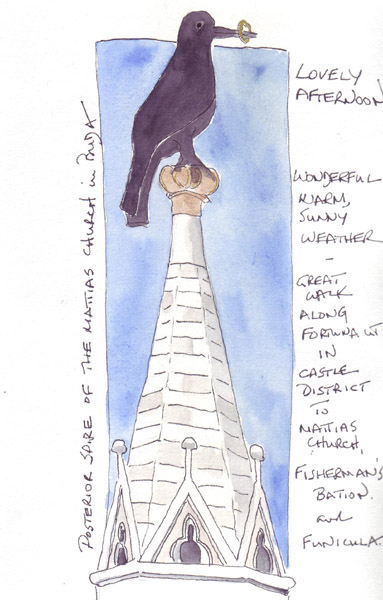 POSTERIOR SPIRE OF THE MATTIAS CHURCH in BUDA
LOVELY
AFTERNOON!
WONDERFUL
WARM,
SUNNY
WEATHER
–
GREAT
WALK
ALONG
FORTUNA UT
IN
CASTLE
DISTRICT
TO
MATTIAS
CHURCH,
FISHERMAN'S
BATION.
and
FUNICULA.